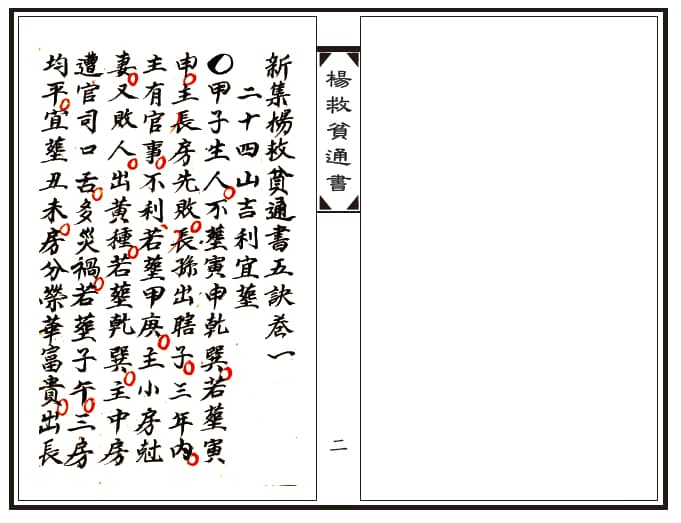 楊救貧通書
新集楊救貧通書五訣卷一
二十四山吉利宜塟
甲子生人不塟寅申乾巽若塟寅
申主長房先敗長孫出瞎子三年內
主有官事不利若塟甲庚主小房尅
妻又敗人出黃種若塟乾巽主中房
遭官司口舌多災禍若塟子午三房
均平宜塟丑未房分榮華富貴出長
二